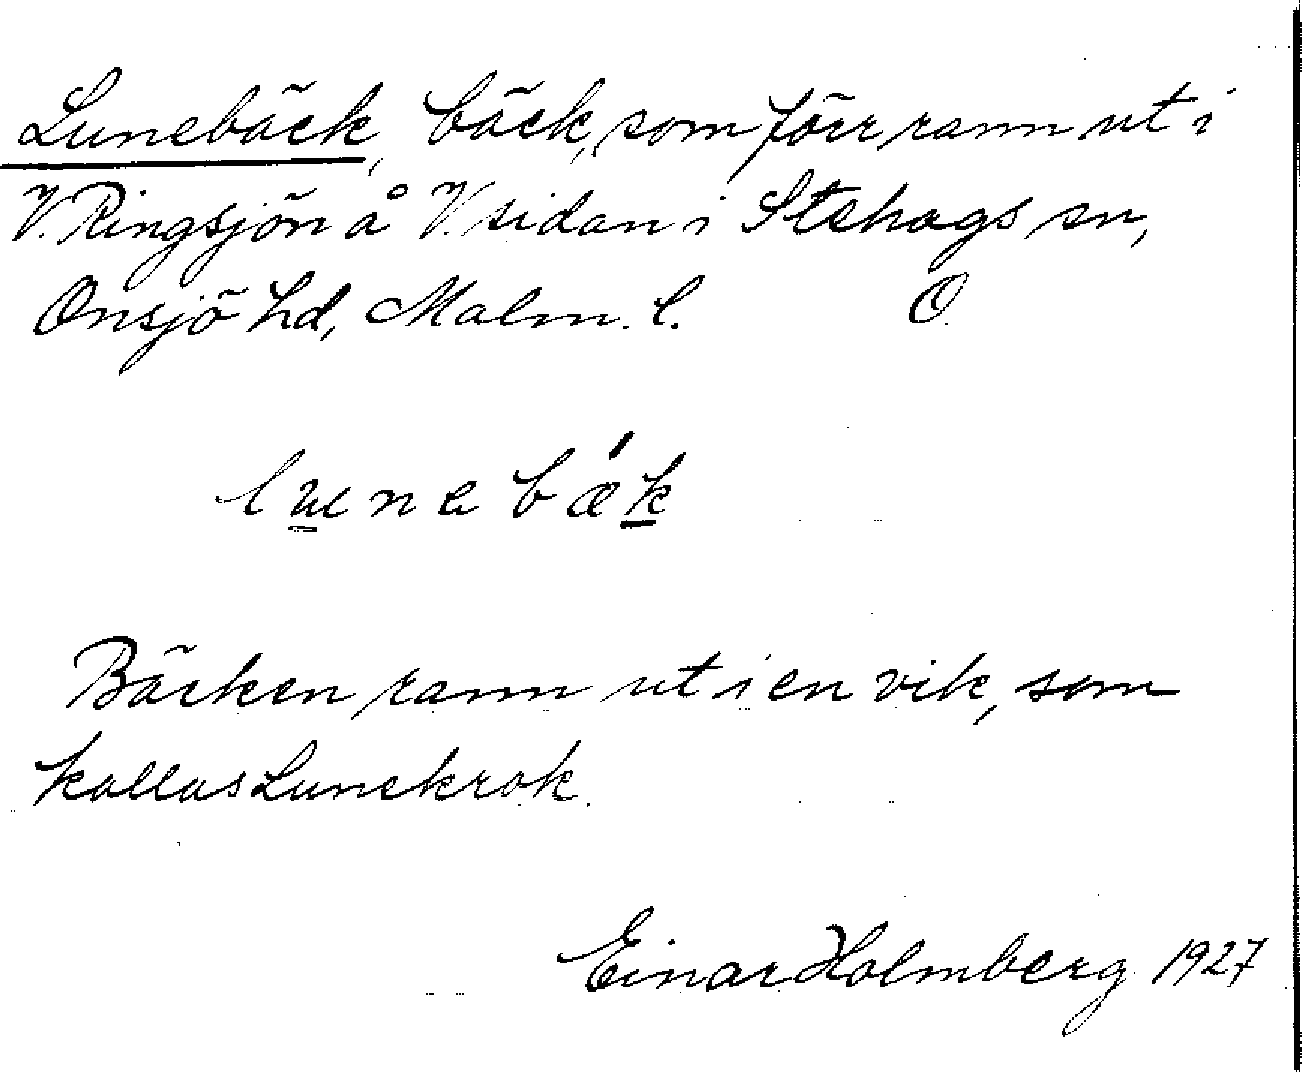 Lunebäck, bäck, som förr rann ut i
V. Ringsjön å V. sidan i Stehags sn,
Onsjö hd, Malm. l. O.
Bäcken rann ut i en vik, som
kallas Lunekrok.
Einar Holmberg 1927